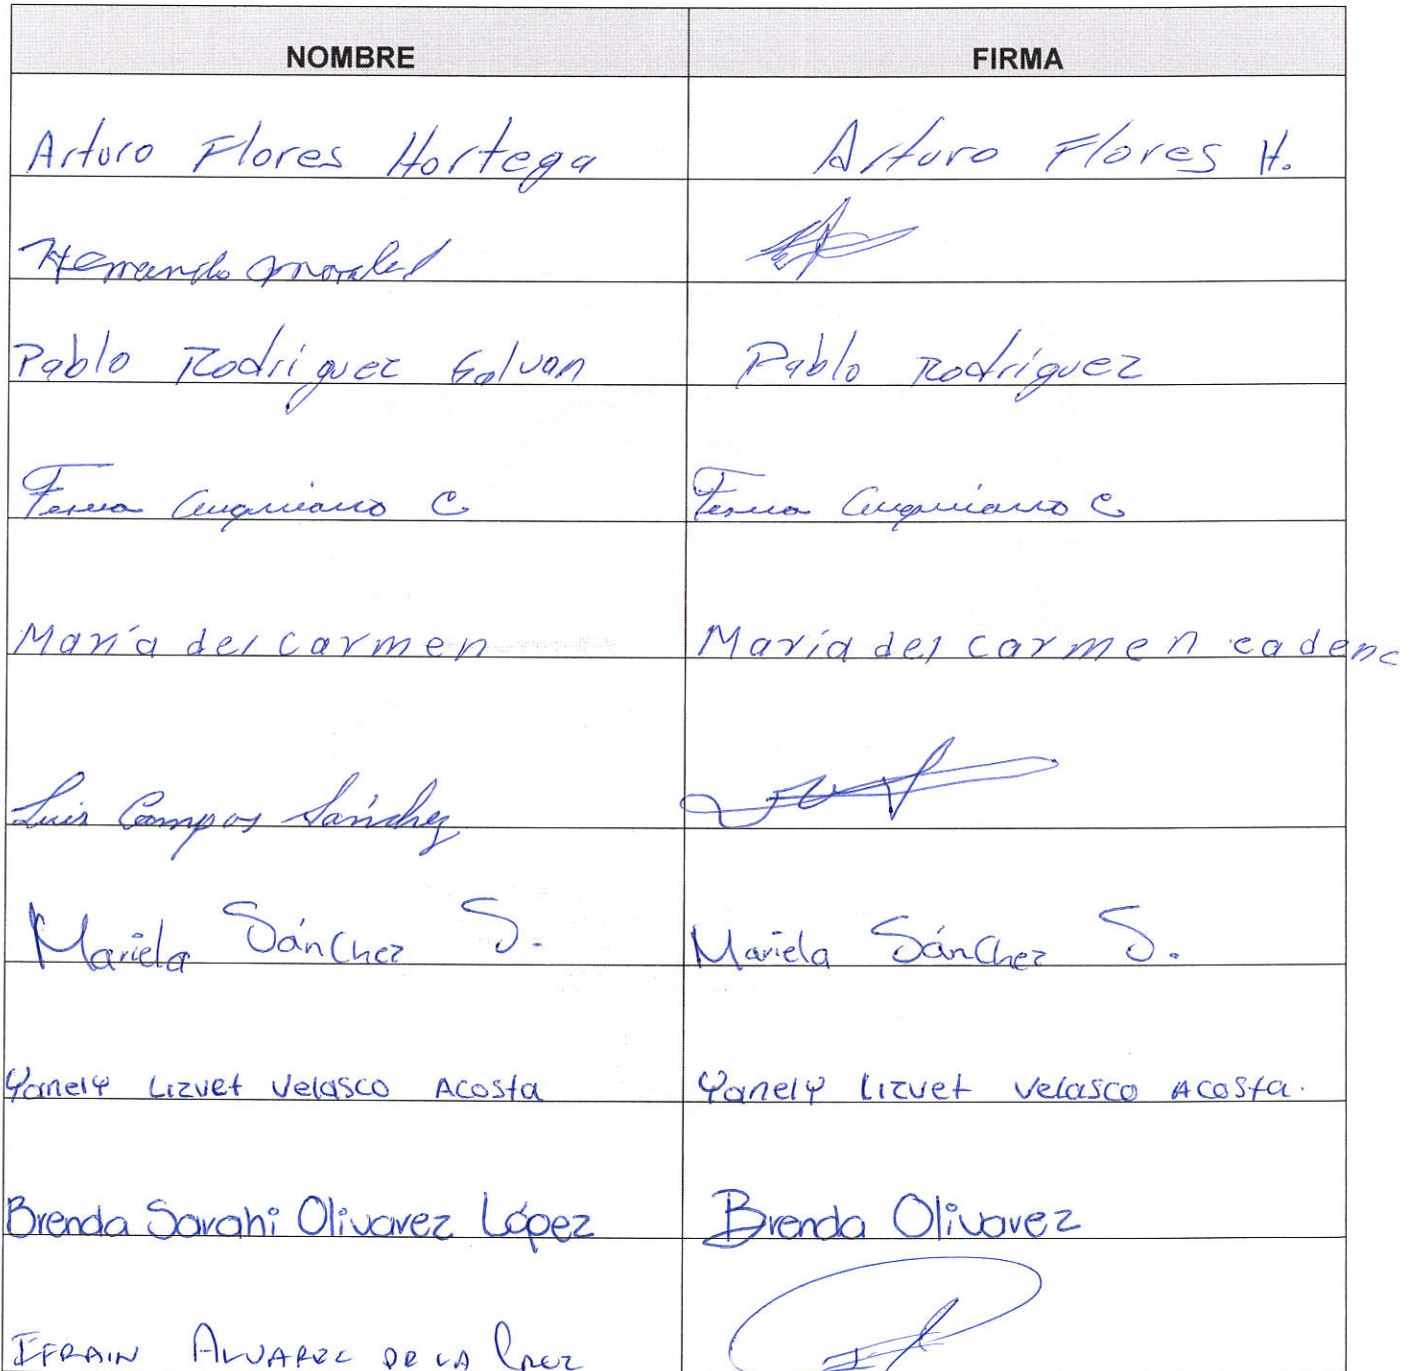 NOMBRE FIRMA
Arturo Flores Hortega Arturo Flores H.
Hernando Morales
Pablo Rodriguez Galvan Pablo Rodríguez
Anguiano C Anguiano C
María del carmen María del carmen cadena
Luis Campos Sánchez
Mariela Sánchez S. Mariela Sánchez S.
Yanely Lizvet Velasco Acosta Yanely Lizvet Velasco Acosta.
Brenda Sarahi Olivarez López Brenda Olivarez
EFRAIN ALVAREZ DE LA CRUZ